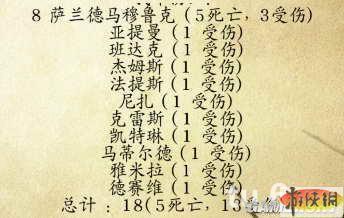 8 萨兰德马穆鲁克（5死亡，3受伤）
亚提曼（1 受伤）
班达克（1 受伤）
杰姆斯（1 受伤）
法提斯（1 受伤）
尼扎（1 受伤）
克雷斯（1 受伤）
凯特琳（1 受伤）
马蒂尔德（1 受伤）
雅米拉（1 受伤）
德赛维（1 受伤）
总计：18(5死亡，13受伤)
游侠网